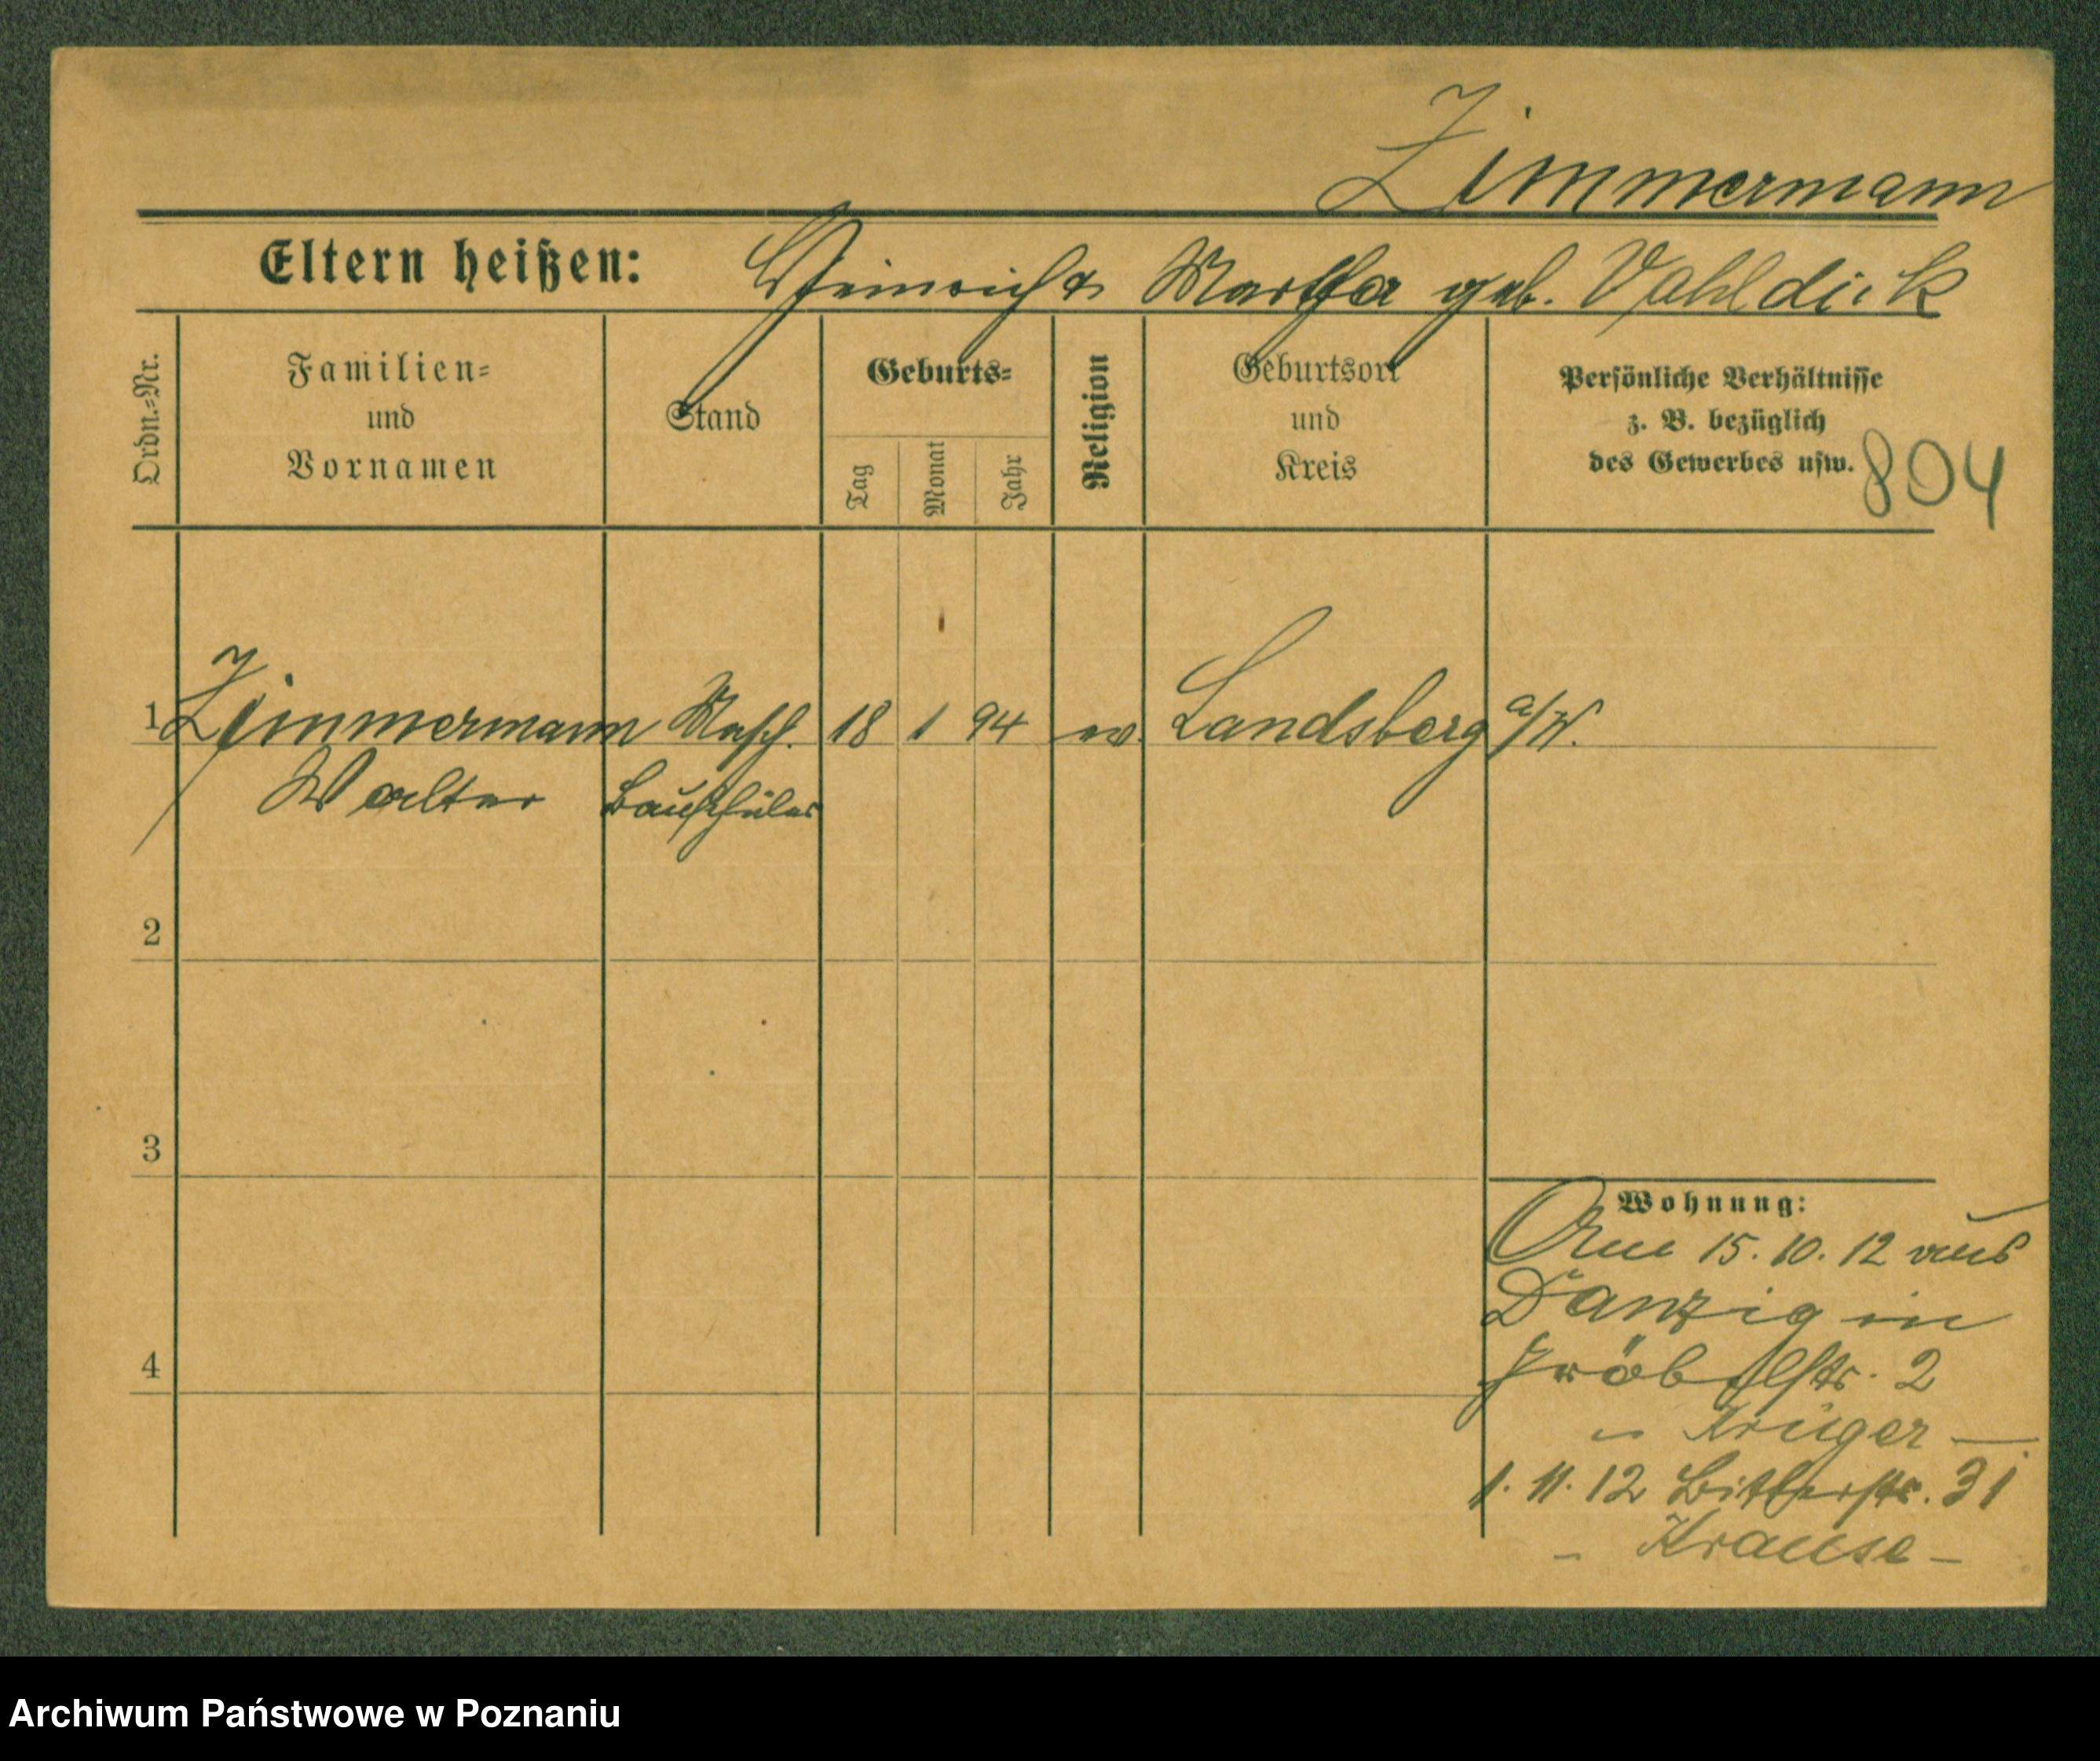 Zimmermann
Eltern heißen: Heinrich & Martha geb. Vahldick
Ordn.=Nr.
Familien=
und
Vornamen
Stand
Geburts=
Tag
Monat
Jahr
Religion
Geburtsort
und
Kreis
Persönliche Verhältnisse
z. B. bezüglich
des Gewerbes usw.
804
1 Zimmermann Masch. 18 1 94 ev. Landsberg a/W.
Walter Bauschüler
2
3
4
Wohnung:
Am 15. 10. 12 aus
Danzig in
Fröbelstr. 2
- Krüger -
1. 11. 12 Bitterstr. 31
- Krause -
Archiwum Państwowe w Poznaniu